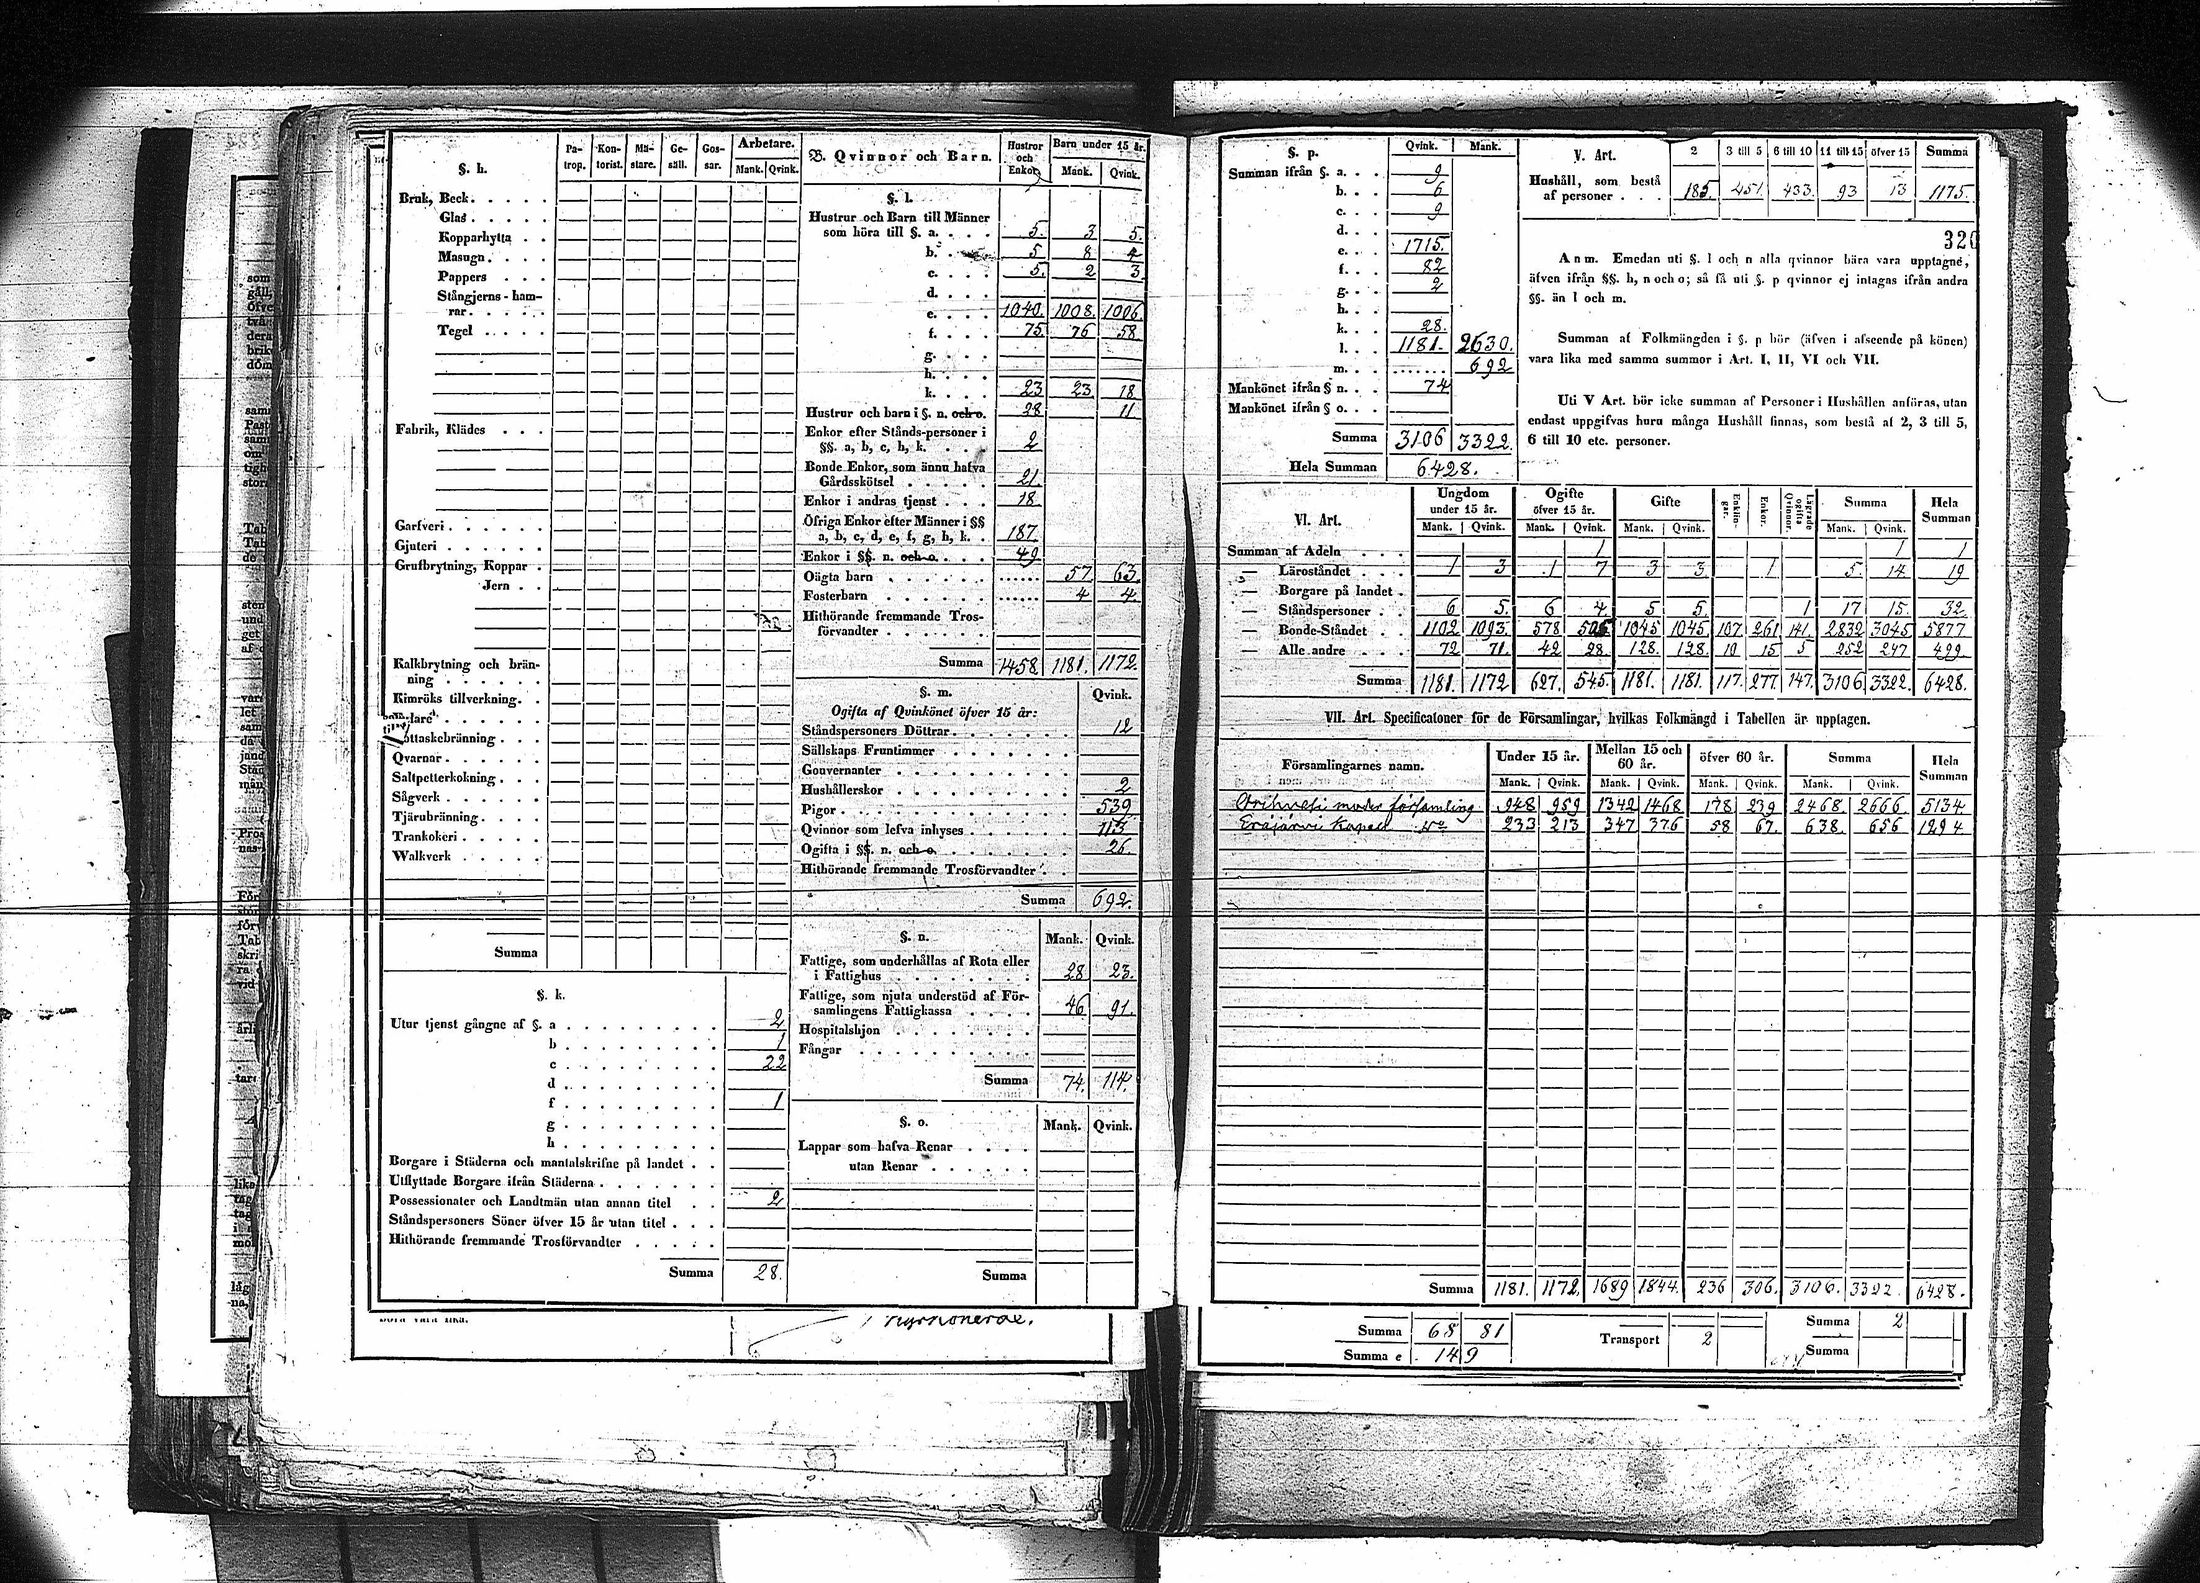 §. h.
Pa-trop. Kon-torist. Mä-stare. Ge-säll. Gos-sar. Arbetare.
Mank. Qvink.
Bruk, Beck
Glas
Kopparhytta
Masugn
Pappers
Stångjerns-ham-
rar
Tegel
Fabrik, Klädes
Garfveri
Gjuteri
Grufbrytning, Koppar
Jern
Kalkbrytning och brän-
ning
Kimröks tillverkning.
Qvarnar
Saltpetterkokning
Sågverk
Tjärubränning
Trankokeri
Walkverk
Summa
§. k.
Utur tjenst gångne af §. a 2
b 1
c 22
d
f 1
g
h
Borgare i Städerna och mantalskrifne på landet
Utflyttade Borgare ifrån Städerna
Possessionater och Landtmän utan annan titel 2
Ståndspersoners Söner öfver 15 år utan titel
Hithörande fremmande Trosförvandter
Summa 28.
B. Qvinnor och Barn. Hustror och Enkor Barn under 15 år.
Mank. Qvink.
§. l.
Hustrur och Barn till Männer
som höra till §. a. 5. 3 5.
b. 5 8 4
c. 5. 2 3
d.
e. 1040. 1008. 1006.
f. 75. 76 58.
g.
h.
k. 23 23 18
Hustrur och barn i §. n. och o. 28 11
Enkor efter Stånds-personer i
§§. a, b, c, h, k. 2
Bonde Enkor, som ännu hafva
Gårdsskötsel 21.
Enkor i andras tjenst 18.
Öfriga Enkor efter Männer i §§
a, b, c, d, e, f, g, h, k. 187.
Enkor i §§. n. och o. 49
Oägta barn 57 63.
Fosterbarn 4 4.
Hithörande fremmande Tros-
förvandter
Summa 1458. 1181. 1172.
§. m. Qvink.
Ogifta af Qvinkönet öfver 15 år:
Ståndspersoners Döttrar 12
Sällskaps Fruntimmer
Gouvernanter
Hushållerskor 2
Pigor 539
Qvinnor som lefva inhyses 113
Ogifta i §§. n. och o. 26.
Hithörande fremmande Trosförvandter
Summa 692.
§. n. Mank. Qvink.
Fattige, som underhållas af Rota eller
i Fattighus 28 23.
Fattige, som njuta understöd af För-
samlingens Fattigkassa 46 91.
Hospitalshjon
Fångar
Summa 74. 114.
§. o. Mank. Qvink.
Lappar som hafva Renar
utan Renar
Summa
§. p. Qvink. Mank.
Summan ifrån §. a. 9
b. 6
c. 9
d.
e. 1715.
f. 82
g. 2
h.
k. 28.
l. 1181. 2630.
m. 692
Mankönet ifrån § n. 74
Mankönet ifrån § o.
Summa 3106 3322.
Hela Summan 6428.
V. Art. 2 3 till 5 6 till 10 11 till 15 öfver 15 Summa
Hushåll, som bestå
af personer 185. 451. 433. 93 13 1175.
320
Anm. Emedan uti §. l och n alla qvinnor böra vara upptagne,
äfven ifrån §§. h, n och o; så få uti §. p qvinnor ej intagas ifrån andra
§§. än l och m.
Summan af Folkmängden i §. p bör (äfven i afseende på könen)
vara lika med samma summor i Art. I, II, VI och VII.
Uti V Art. bör icke summan af Personer i Hushållen anföras, utan
endast uppgifvas huru många Hushåll finnas, som bestå af 2, 3 till 5,
6 till 10 etc. personer.
VI. Art. Ungdom under 15 år. Ogifte öfver 15 år. Gifte Enklin-gar. Enkor. Lägrade ogifta Qvinnor. Summa Hela Summan
Mank. Qvink. Mank. Qvink. Mank. Qvink. Mank. Qvink.
Summan af Adeln 1 1 1
— Läroståndet 1 3 1 7 3 3 1 5. 14 19
— Borgare på landet
— Ståndspersoner 6 5. 6 4. 5 5. 1 17 15. 32
— Bonde-Ståndet 1102 1093. 578 505 1045 1045 107. 261 141. 2832 3045 5877
— Alle andre 72 71. 42 28 128. 128. 10 15 5 252 247 499.
Summa 1181. 1172 627. 545. 1181. 1181. 117. 277. 147. 3106 3322. 6428.
VII. Art. Specificatoner för de Församlingar, hvilkas Folkmängd i Tabellen är upptagen.
Församlingarnes namn. Under 15 år. Mellan 15 och 60 år. öfver 60 år. Summa Hela Summan
Mank. Qvink. Mank. Qvink. Mank. Qvink. Mank. Qvink.
Orihvesi moder församling 948 959 1342 1468 178 239 2468. 2666. 5134
Eräjärvi Kapell 233 213 347 376 58 67. 638. 656 1294
Summa 1181. 1172. 1689 1844. 236 306. 3106. 3322. 6428.
Summa 68 81
Summa e 149
Transport 2
Summa 2
Summa